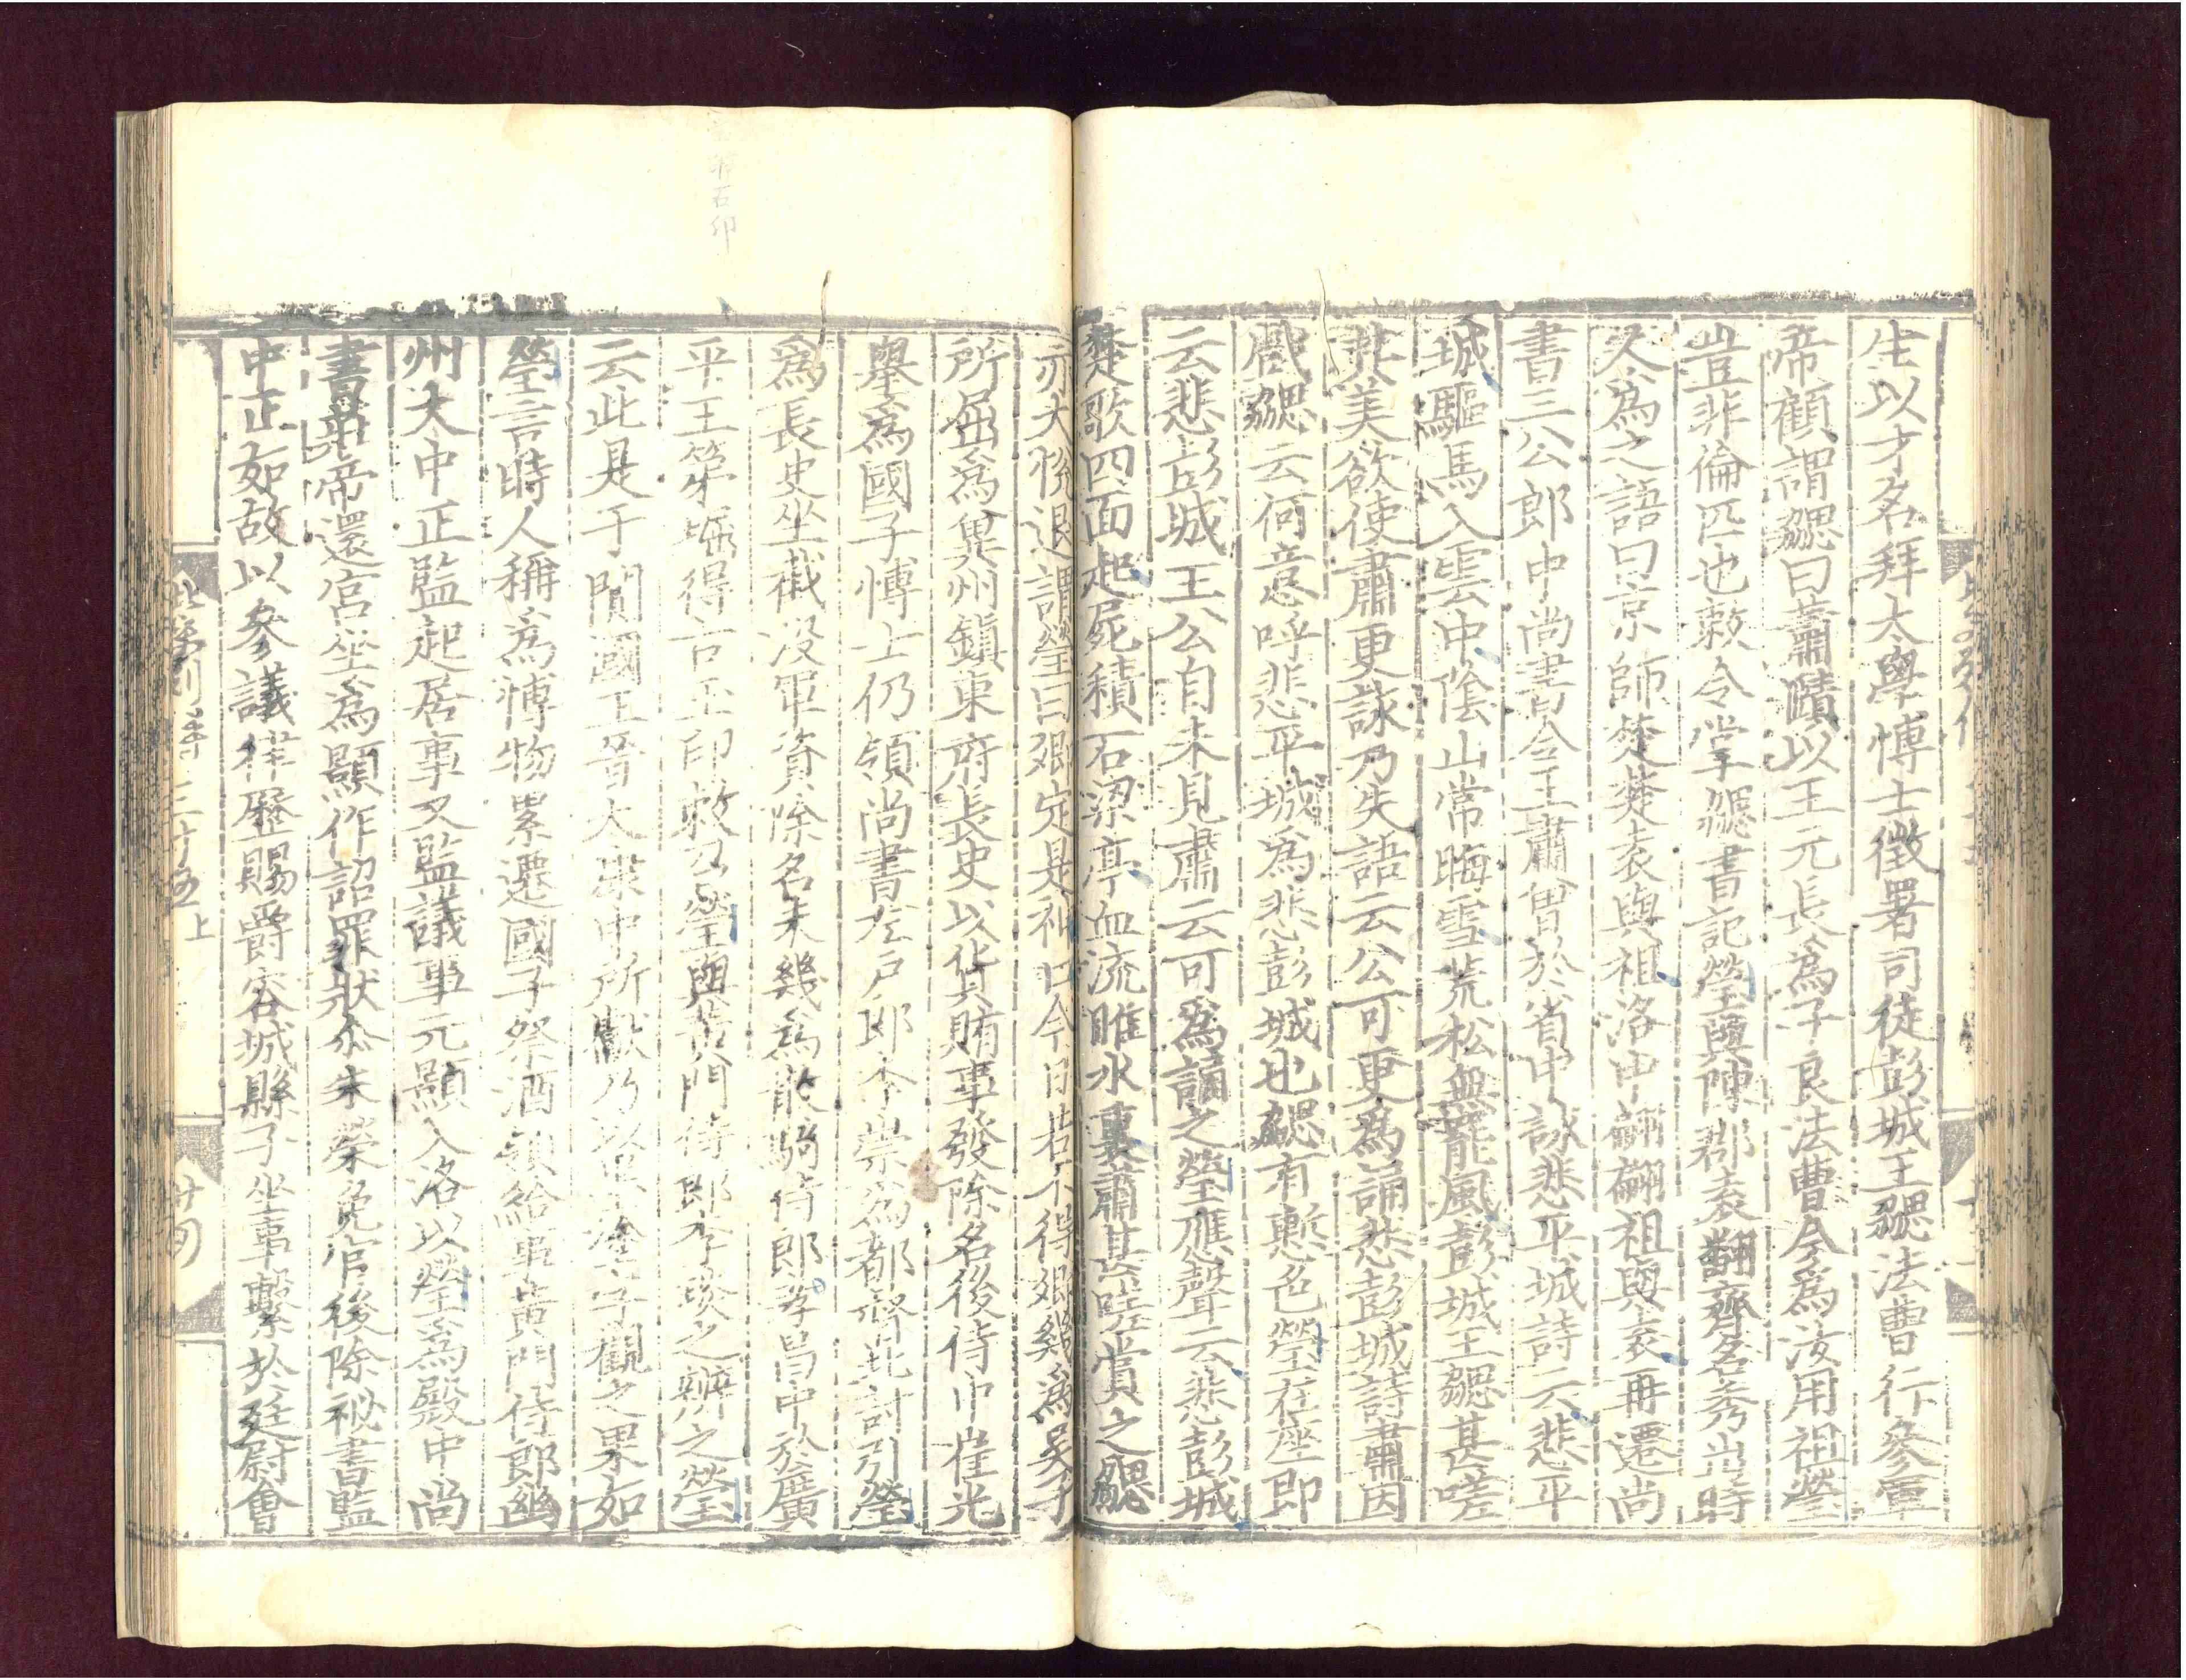 生以才名拜太學博士徵署司徒彭城王勰法曹行參軍
帝顧謂勰曰蕭賾以王元長爲子良法曹今爲汝用祖瑩
豈非倫匹也敕令掌勰書記瑩與陳郡袁翻齊名秀出時
人爲之語曰京師楚楚袁與祖洛中翩翩祖與袁再遷尚
書三公郎中尚書令王肅曾於省中詠悲平城詩云悲平
城驅馬入雲中陰山常晦雪荒松無罷風彭城王勰甚嗟
其美欲使肅更詠乃失語云公可更爲誦悲彭城詩肅因
戲勰云何意呼悲平城爲悲彭城也勰有慙色瑩在座即
云悲彭城王公自未見肅云可爲誦之瑩應聲云悲彭城
楚歌四面起屍積石梁亭血流睢水裏肅甚嗟賞之勰
亦大悅退謂瑩曰卿定是神口今日若不得卿幾爲吳子
所屈爲冀州鎭東府長史以貨賄事發除名後侍中崔光
擧爲國子博士仍領尚書左戶郎李崇爲都督北討引瑩
爲長史坐截没軍資除名未幾爲散騎侍郎孝昌中於廣
平王第掘得古玉印敕召瑩與黃門侍郎李琰之辨之瑩
云此是于闐國王晉太康中所獻乃以墨塗字觀之果如
瑩言時人稱爲博物累遷國子祭酒領給事黃門侍郎幽
州大中正監起居事又監議事元顥入洛以瑩爲殿中尚
書莊帝還宮坐爲顥作詔罪狀尒朱榮免官後除祕書監
中正如故以參議律曆賜爵容城縣子坐事繫於廷尉會
列傳三十五上